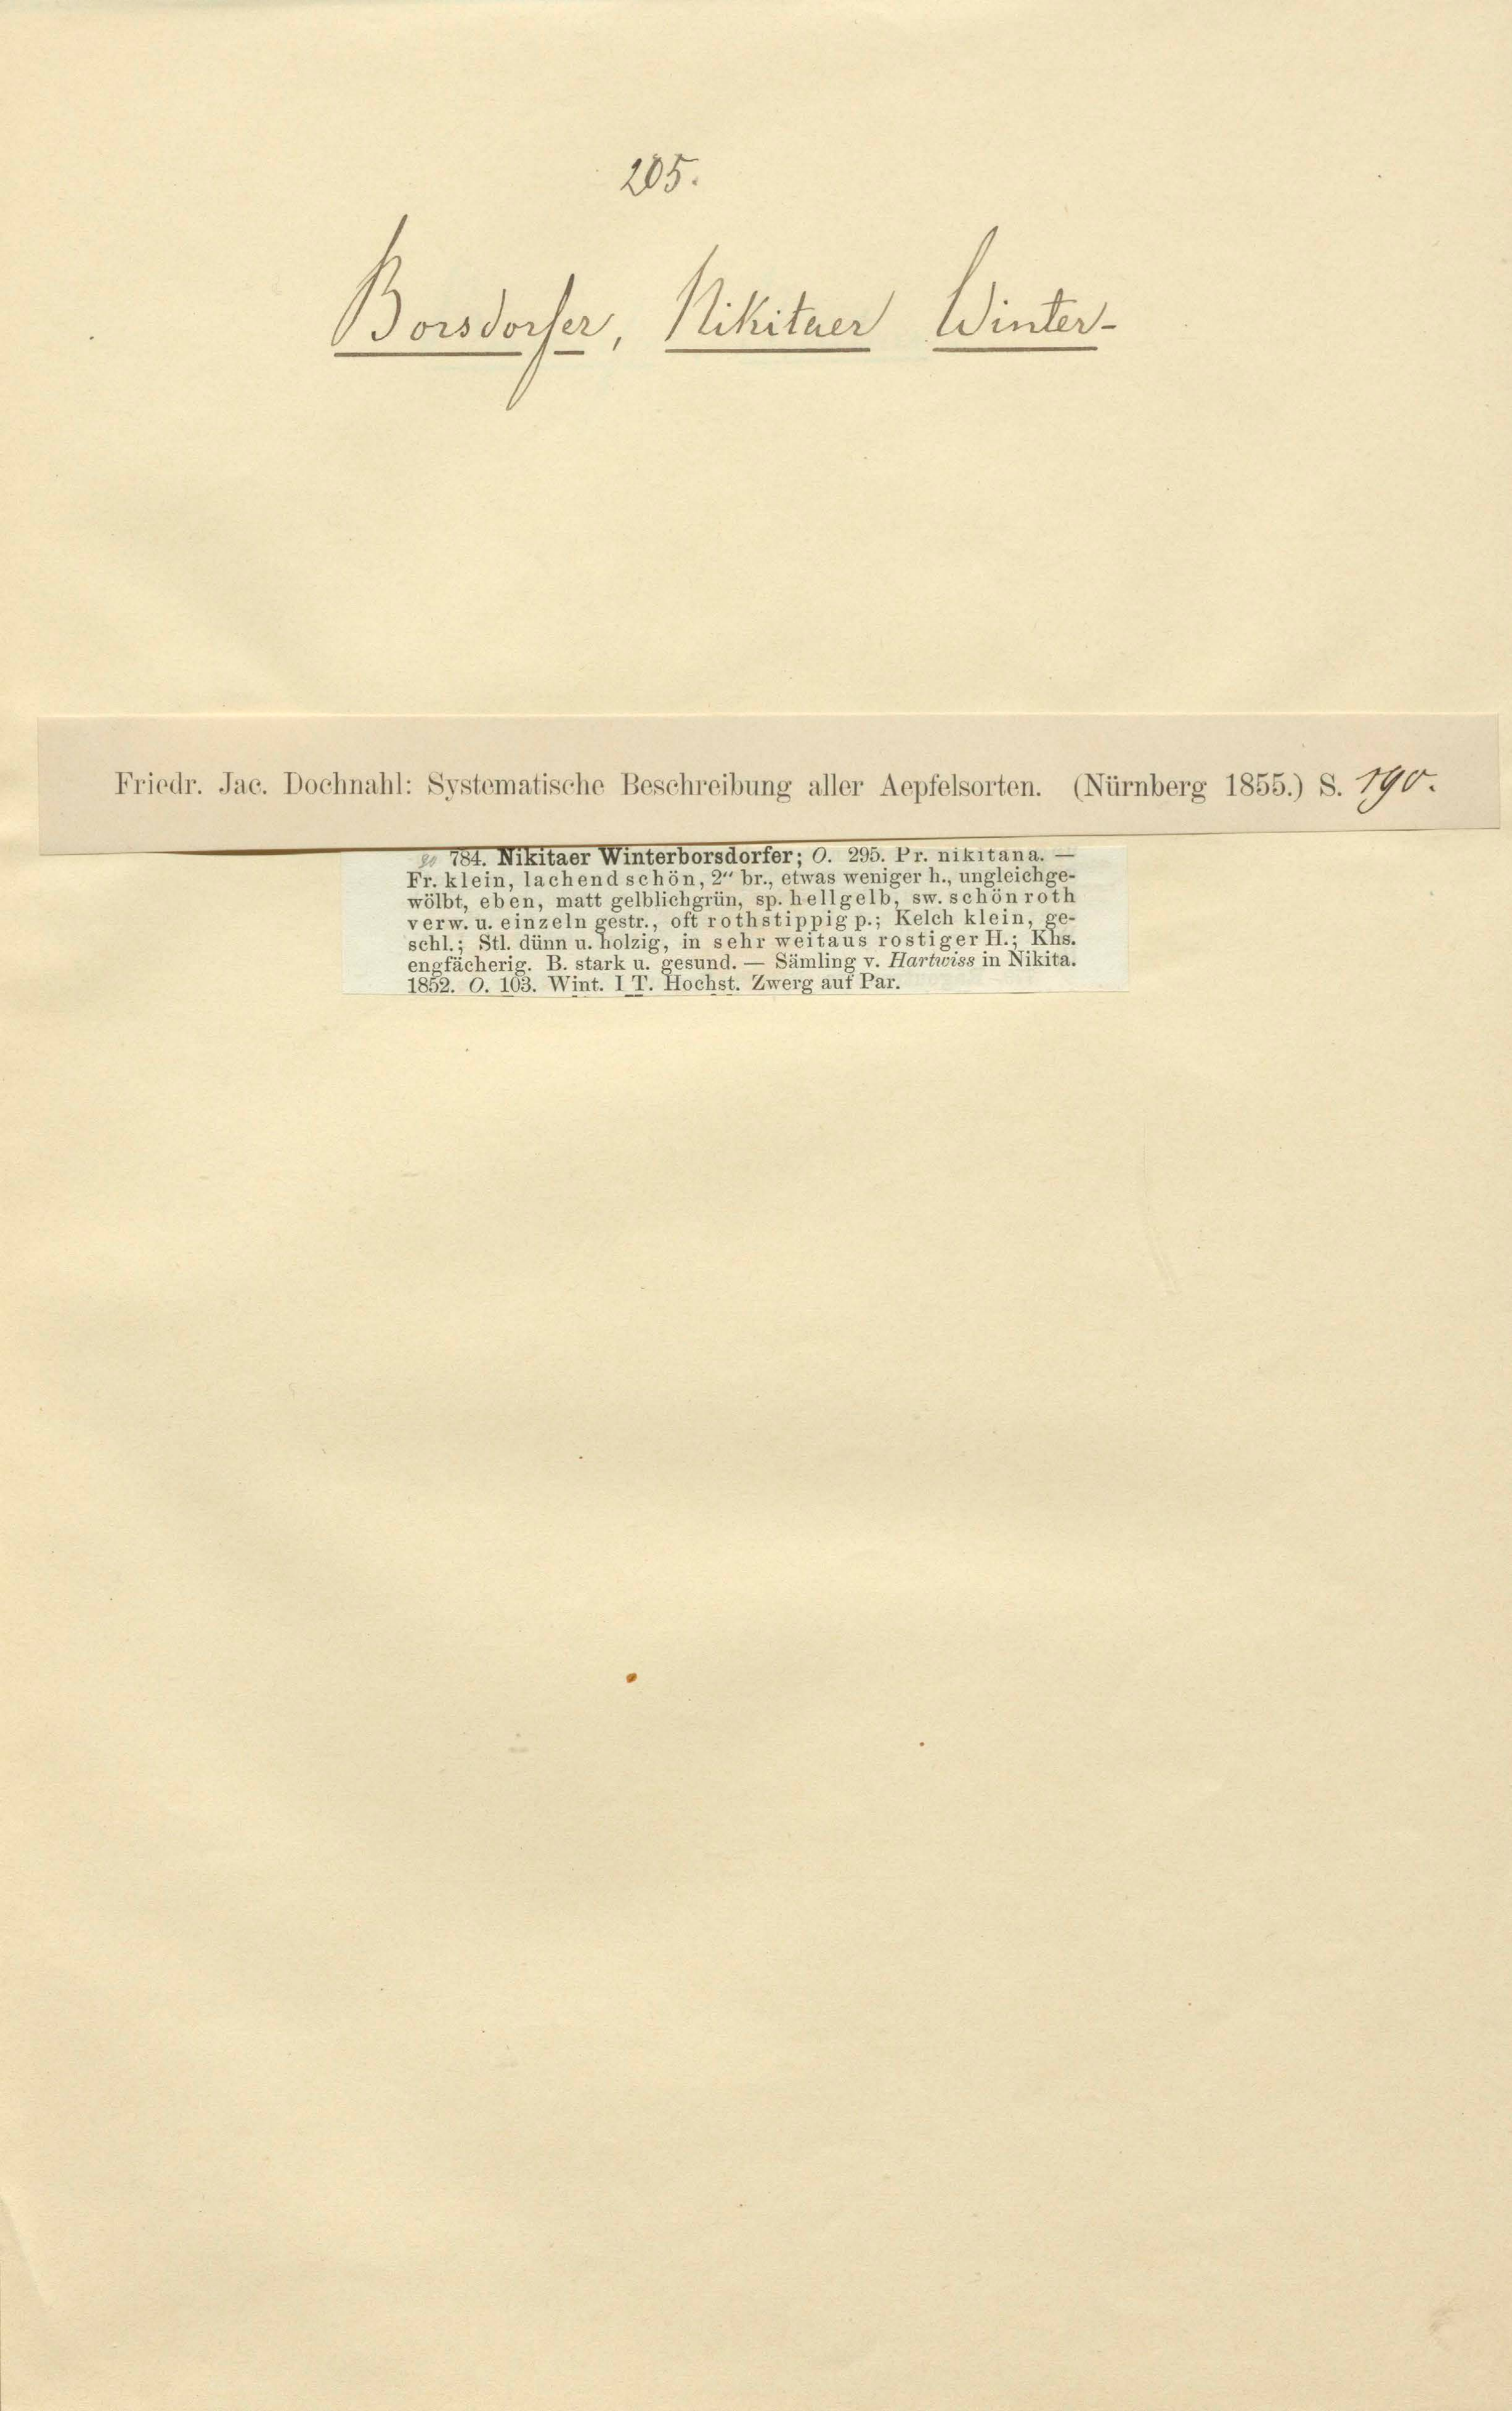 205.
Borsdorfer, Nikitaer Winter-
Friedr. Jac. Dochnahl: Systematische Beschreibung aller Aepfelsorten. (Nürnberg 1855.) S. 190.
784. Nikitaer Winterborsdorfer; O. 295. Pr. nikitana. —
Fr. klein, lachend schön, 2″ br., etwas weniger h., ungleichge-
wölbt, eben, matt gelblichgrün, sp. hellgelb, sw. schön roth
verw. u. einzeln gestr., oft rothstippig p.; Kelch klein, ge-
schl.; Stl. dünn u. holzig, in sehr weitaus rostiger H.; Khs.
engfächerig. B. stark u. gesund. — Sämling v. Hartwiss in Nikita.
1852. O. 103. Wint. I T. Hochst. Zwerg auf Par.